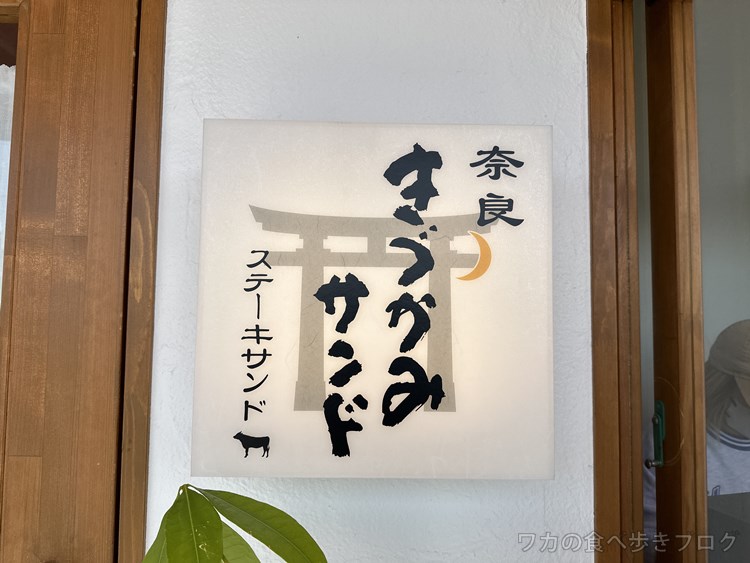 奈良
きづかみ
サンド
ステーキサンド
ワカの食べ歩きブログ